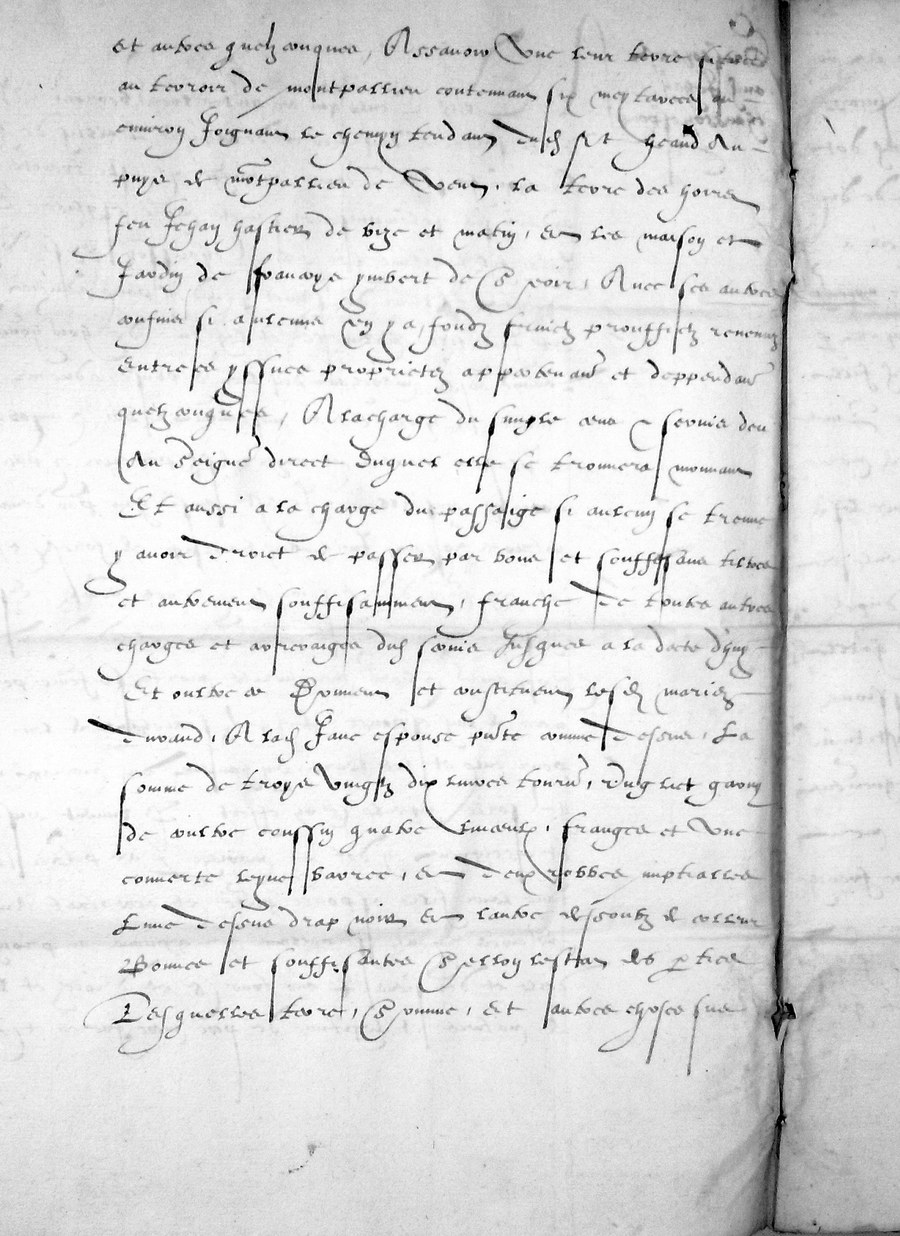 et autres quelzconques, Assavoir Une leur terre sittuee
au terroir de montpallien contenant six meytarees ou
environ Joignant le chemyn tendant dud Au
puys de montpallien de Vent, la terre des hoirs
feu Jehan hastier de bize et matin, et les maison et
Jardin de francoyse ymbert de Soir, Avec ses autres
confins si aulcuns en y a, fondz fruictz prouffictz revenuz
Entrees yssues proprietez appartenans et deppendans
quelzconques, A la charge du simple cens & servis deu
Au Seigneur direct Duquel elle se trouvera mouvant
Et aussi a la charge du passaige si aulcun se treuve
y avoir droict de passer par bons et souffisans tiltres
et autrement souffisamment, franche de toutes autres
charges et arreraiges dud servis Jusques a la date d'huy
Et oultre ce Donnent et constituent lesd mariez
durand, A lad Jane espouse pnte comme dessus, La
somme de troys vingtz dix livres tourn, Ung lict garny
de coultre coussin quatre linceulx, franges et Une
couverte leyne barree, et deux robbes nuptialles
Lune dessus drap noir et lautre dessoubz de colleur
Bonnes et souffisantes Selon lestat des parties
Desquelles terre, Somme, Et autres choses sus